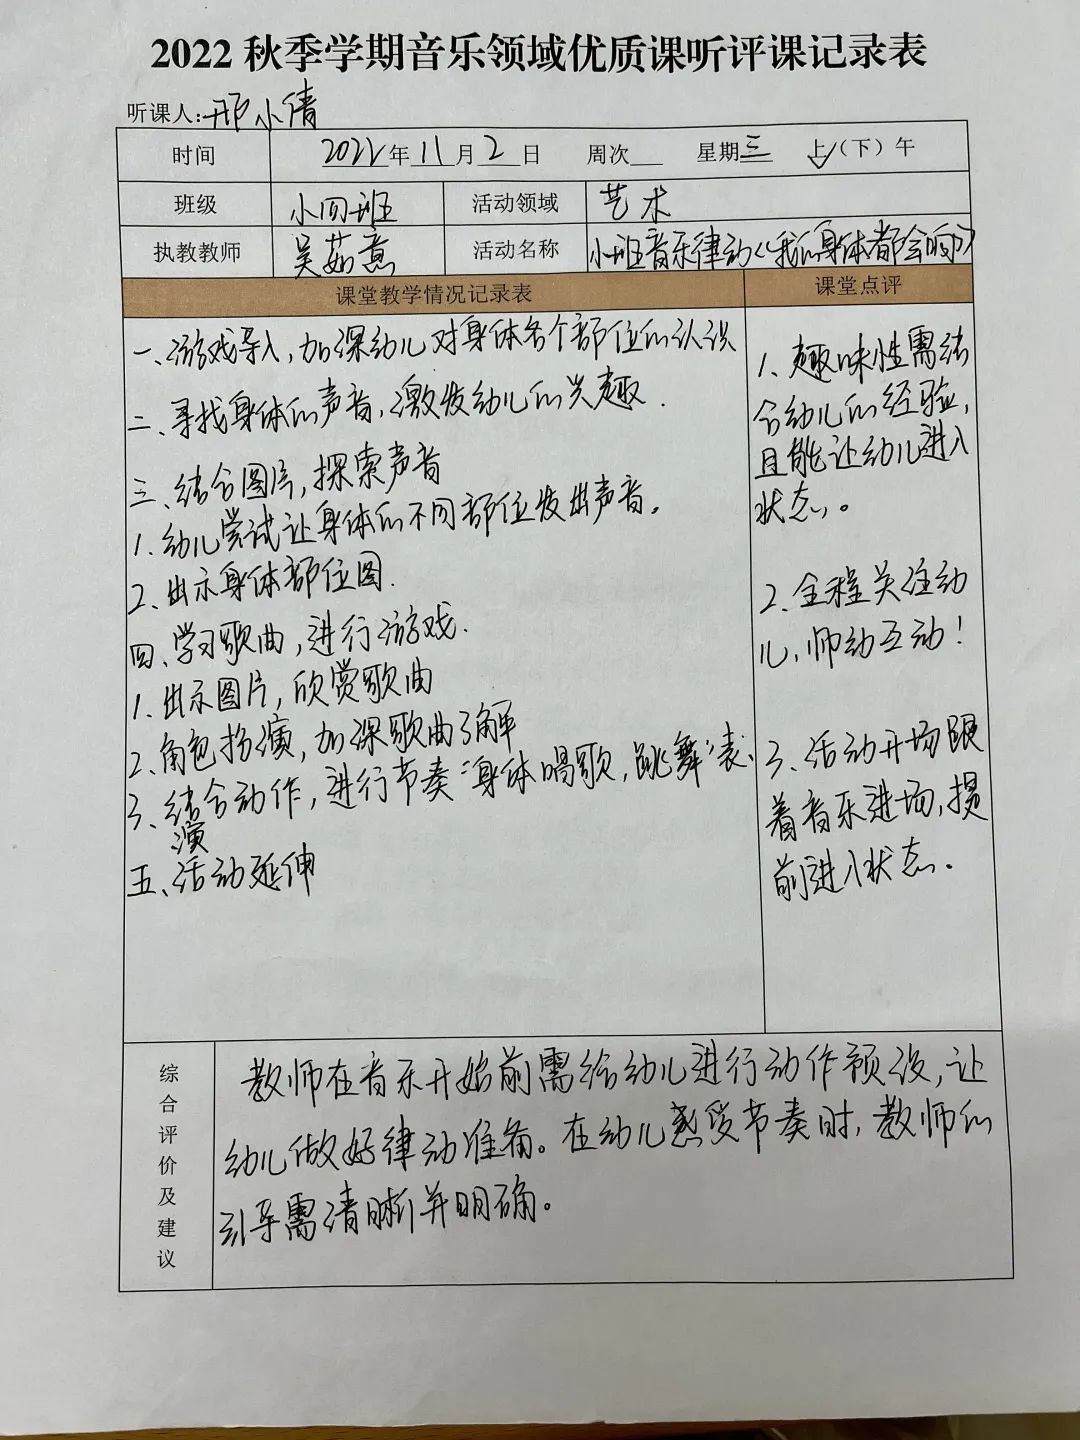 2022 秋季学期音乐领域优质课听评课记录表
听课人:邢小倩
时间 2022年 11 月 2 日 周次 星期三 上(下)午
班级 小四班 活动领域 艺术
执教教师 吴茹意 活动名称 小班音乐律动《我的身体都会响》
课堂教学情况记录表 课堂点评
一、游戏导入,加深幼儿对身体各个部位的认识
二、寻找身体的声音,激发幼儿的兴趣.
三、结合图片,探索声音
1、幼儿尝试让身体的不同部位发出声音。
2、出示身体部位图.
四、学习歌曲,进行游戏.
1、出示图片,欣赏歌曲
2、角色扮演,加深歌曲了解
3、结合动作,进行节奏“身体唱歌,跳舞”表
演
五、活动延伸
1、趣味性需结
合幼儿的经验,
且能让幼儿进入
状态。
2、全程关注幼
儿,师幼互动!
3、活动开场跟
着音乐进场,提
前进入状态.
综合评价及建议
教师在音乐开始前需给幼儿进行动作预设,让
幼儿做好律动准备。在幼儿感受节奏时,教师的
引导需清晰并明确。